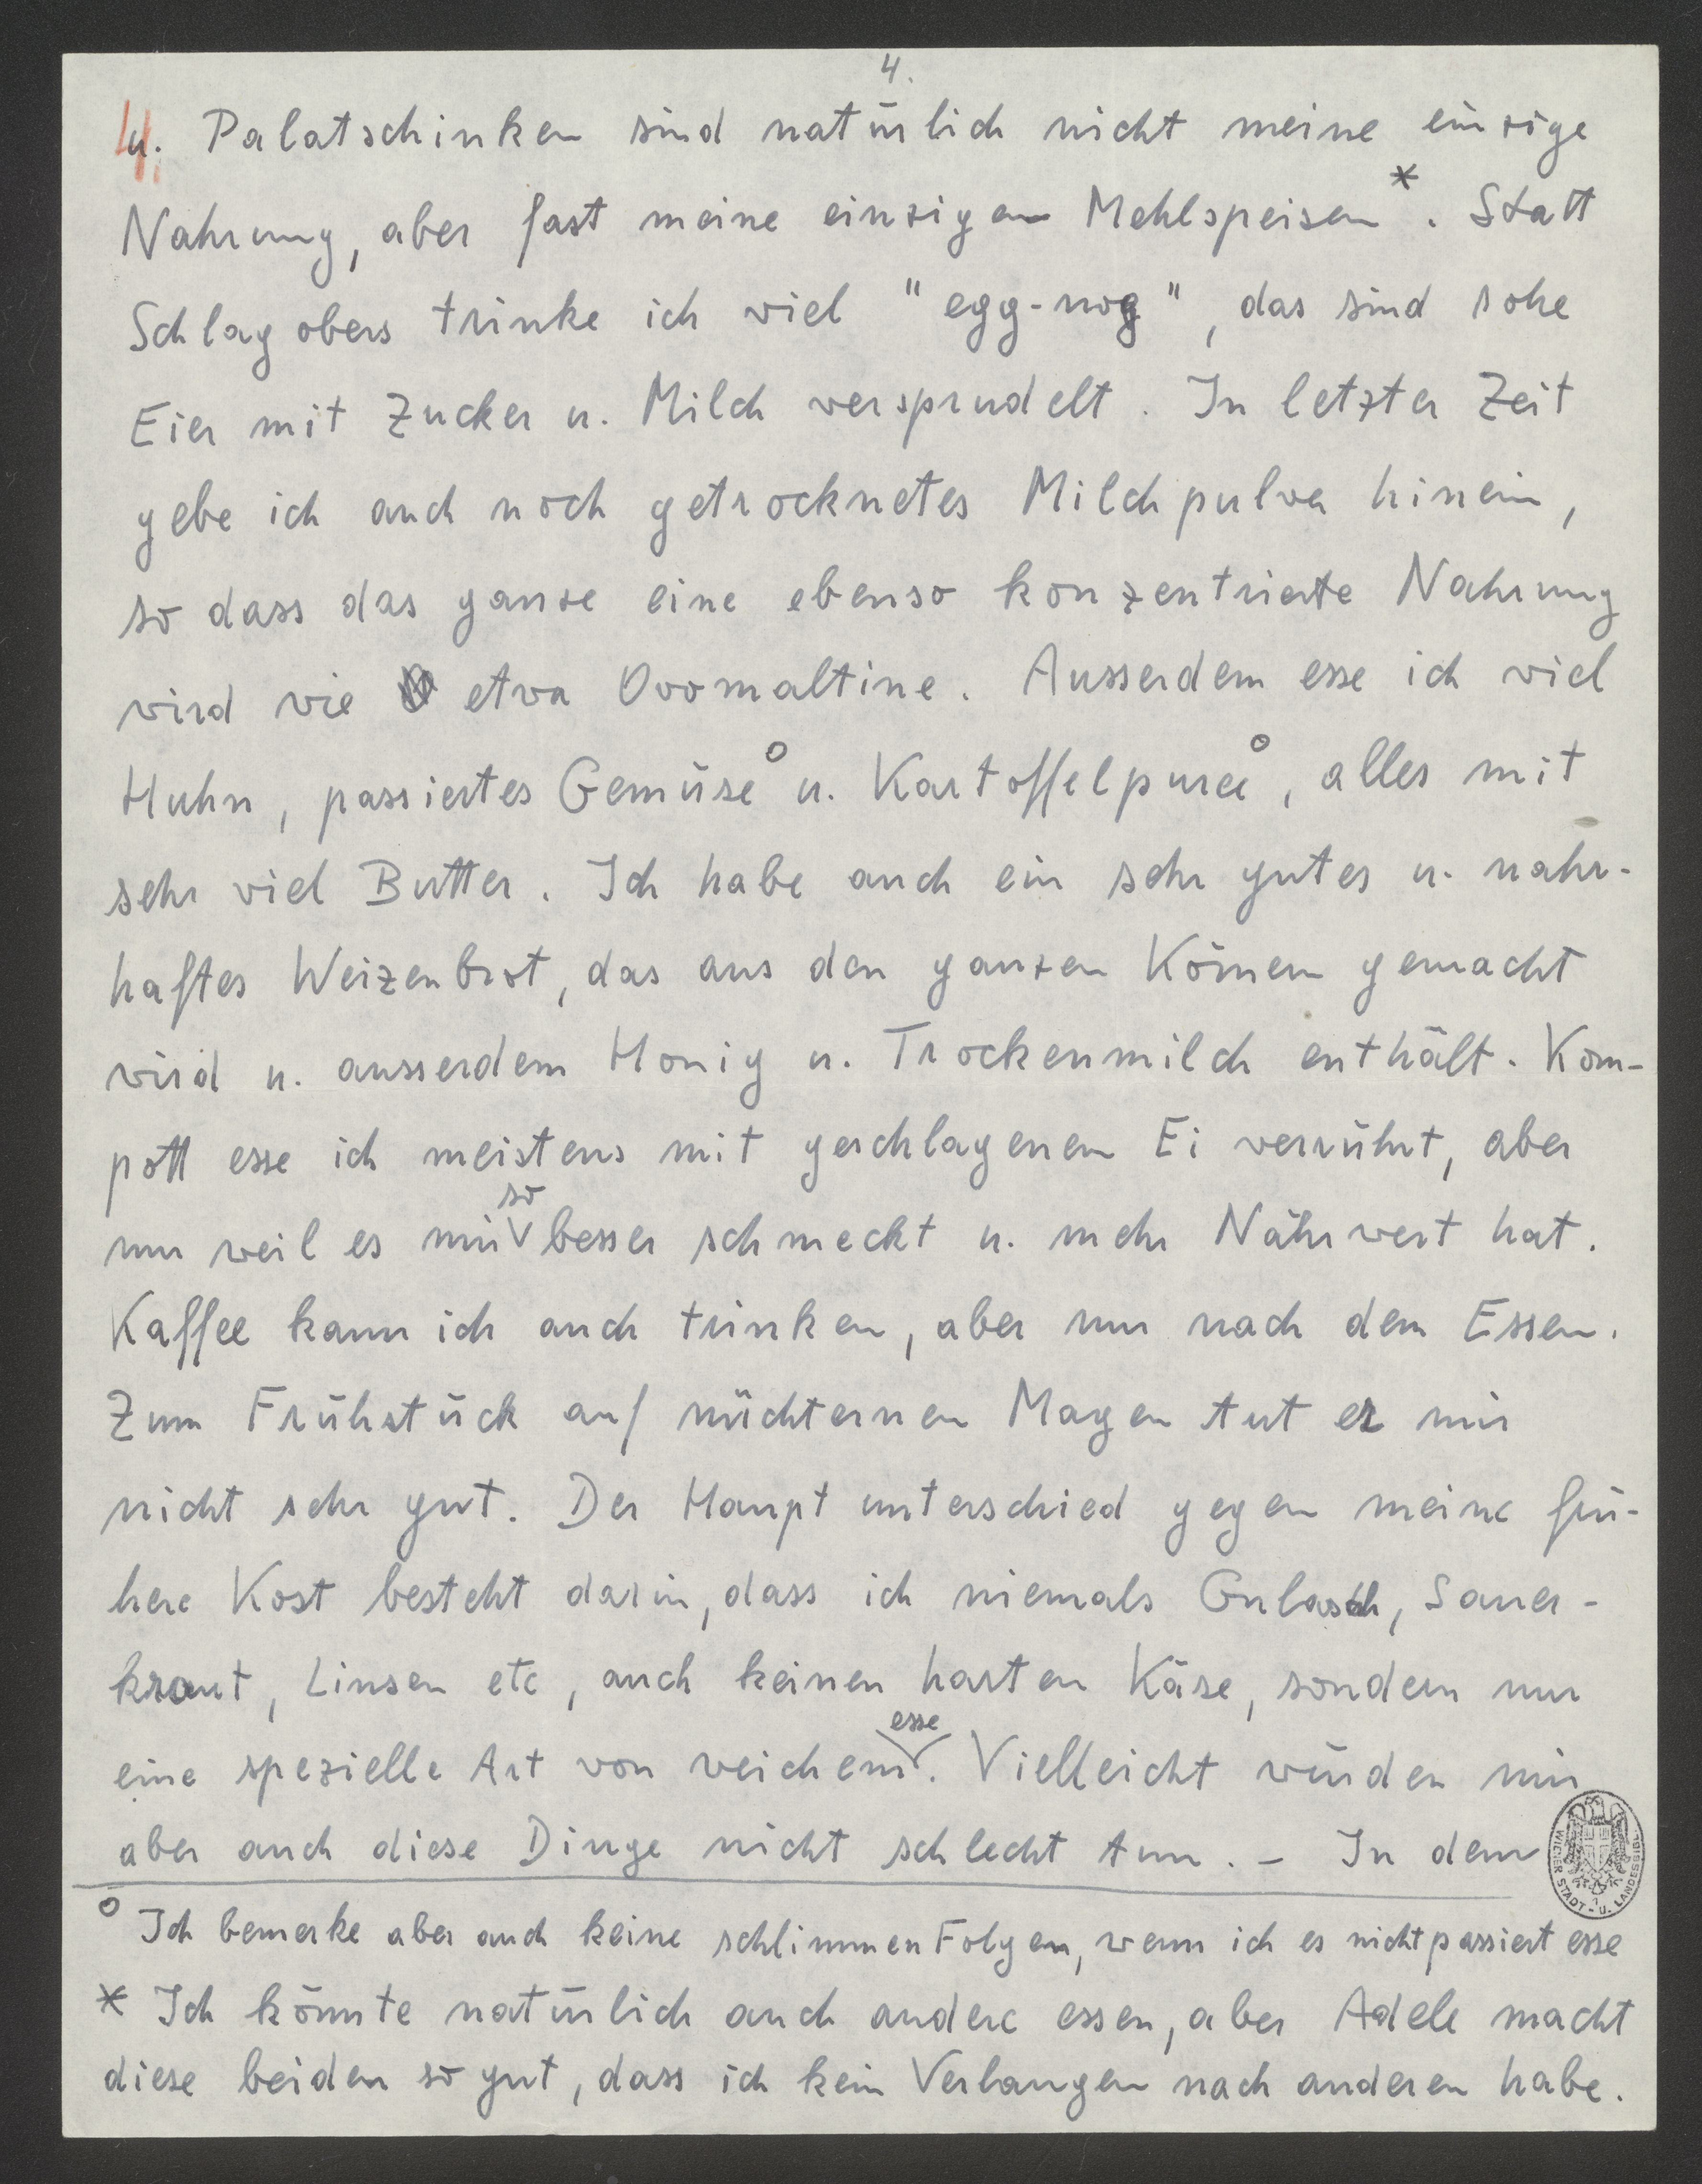 4.
4. u. Palatschinken sind natürlich nicht meine einzige
Nahrung, aber fast meine einzigen Mehlspeisen*. Statt
Schlagobers trinke ich viel "egg-nog", das sind rohe
Eier mit Zucker u. Milch versprudelt. In letzter Zeit
gebe ich auch noch getrocknetes Milchpulver hinein,
so dass das ganze eine ebenso konzentrierte Nahrung
wird wie etwa Ovomaltine. Ausserdem esse ich viel
Huhn, passiertes Gemüse° u. Kartoffelpuree°, alles mit
sehr viel Butter. Ich habe auch ein sehr gutes u. nahr-
haftes Weizenbrot, das aus den ganzen Körnern gemacht
wird u. ausserdem Honig u. Trockenmilch enthält. Kom-
pott esse ich meistens mit geschlagenem Ei verrührt, aber
nur weil es mir so besser schmeckt u. mehr Nährwert hat.
Kaffee kann ich auch trinken, aber nur nach dem Essen.
Zum Frühstück auf nüchternen Magen tut er mir
nicht sehr gut. Der Hauptunterschied gegen meine frü-
here Kost besteht darin, dass ich niemals Gulasch, Sauer-
kraut, Linsen etc, auch keinen harten Käse, sondern nur
eine spezielle Art von weichem esse. Vielleicht würden mir
aber auch diese Dinge nicht schlecht tun. – In dem
WIENER STADT- U. LANDESBIBL.
° Ich bemerke aber auch keine schlimmen Folgen, wenn ich es nicht passiert esse
* Ich könnte natürlich auch andere essen, aber Adele macht
diese beiden so gut, dass ich kein Verlangen nach anderen habe.